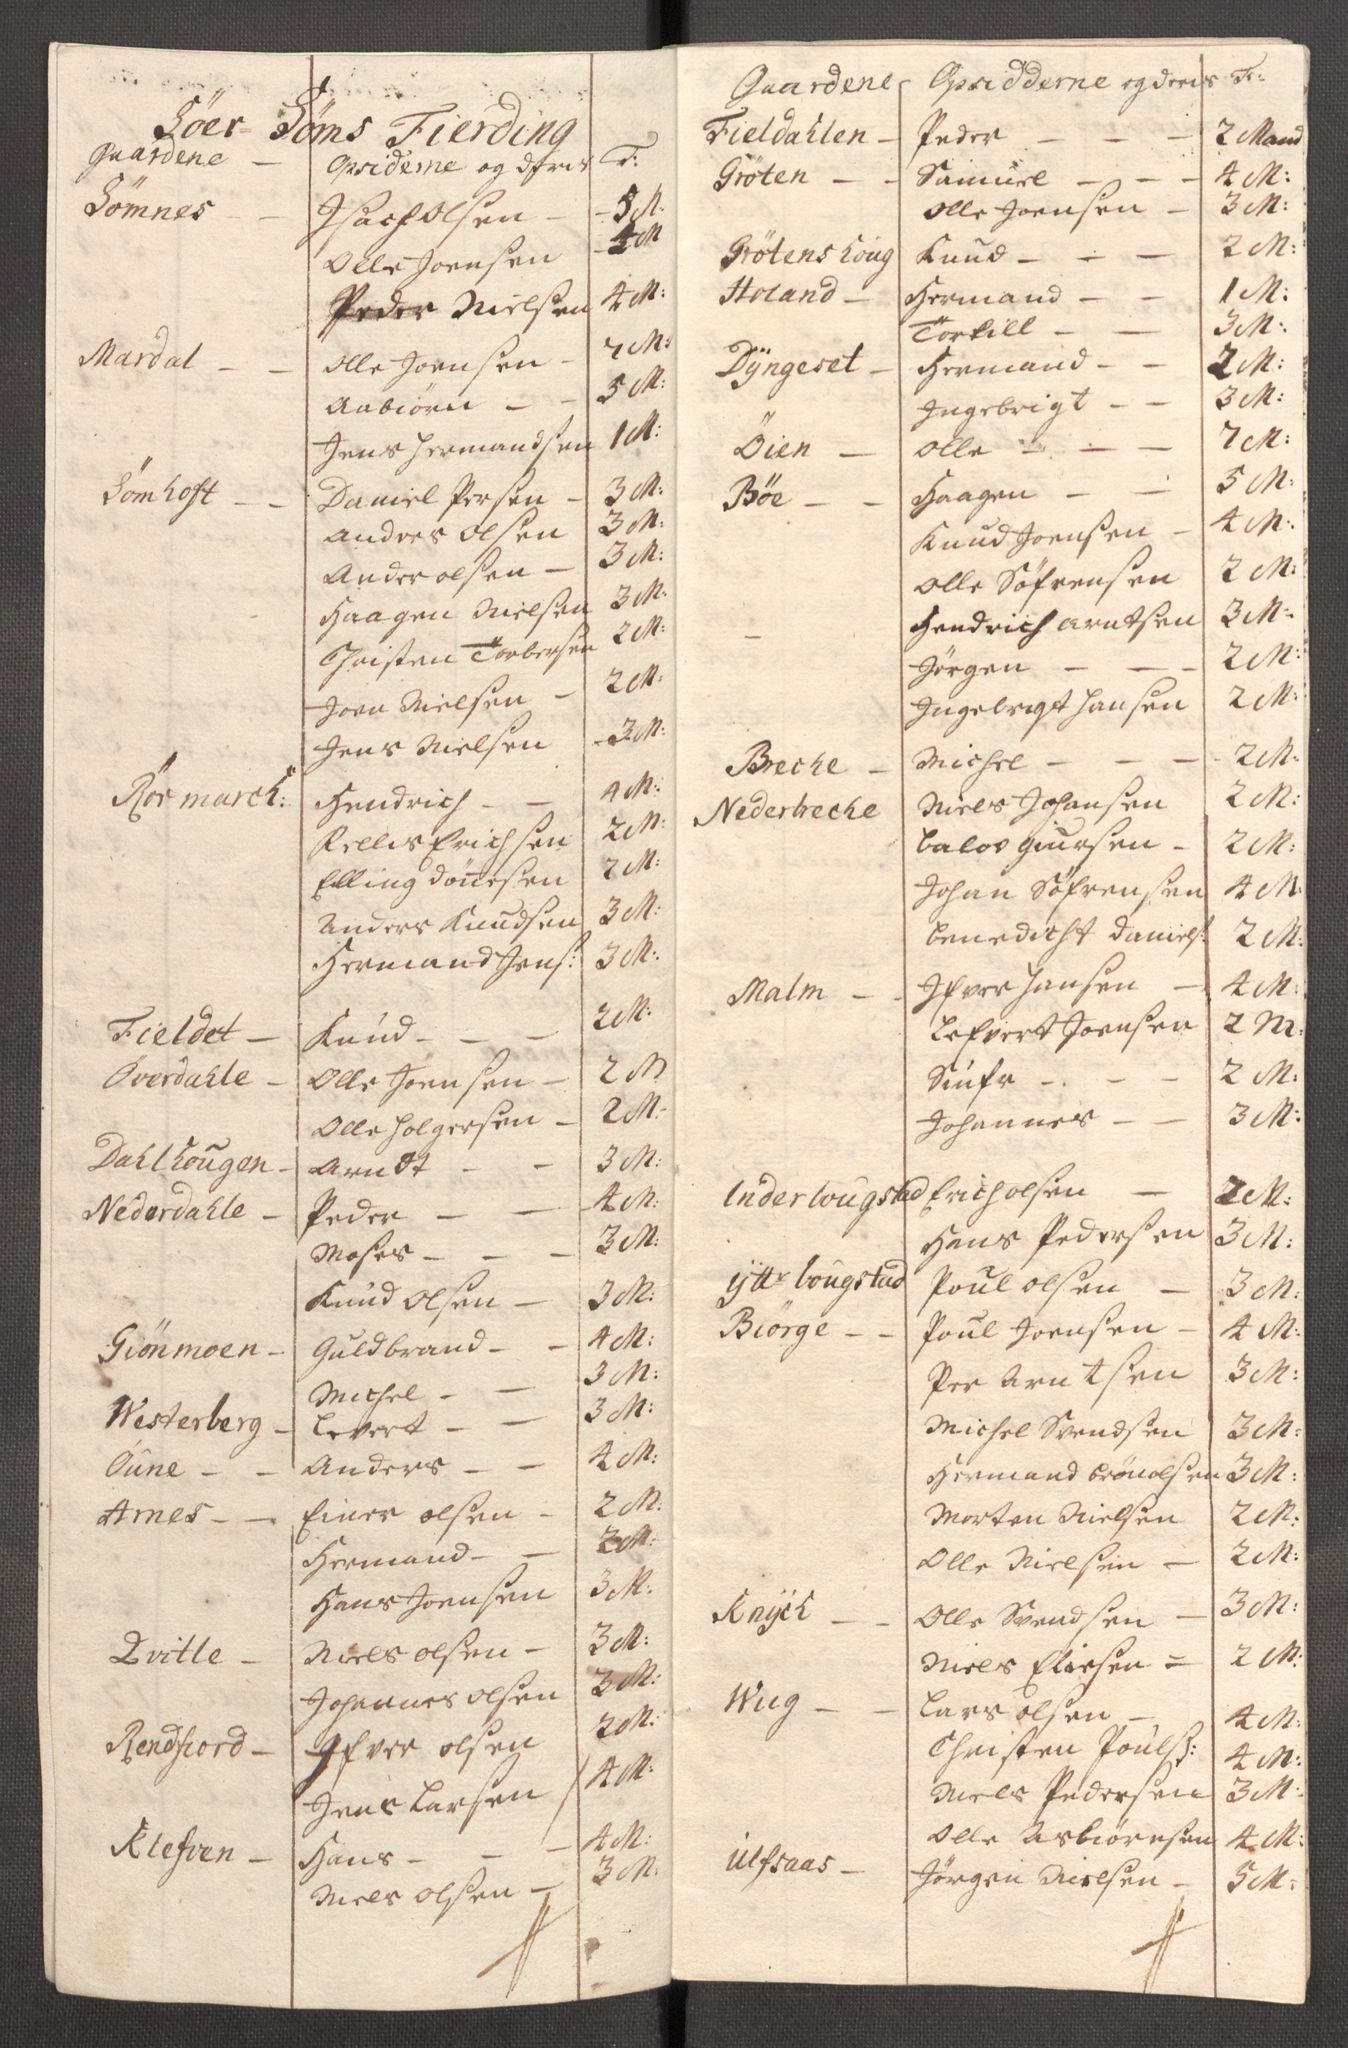 Söer Söms Fierding
Guardene — Opsiderne og dfris T:
Sömnes — — Isach Olsen — 5 M.
Olle Joensen — 4 M
Peder Nielsen 4 M:
Mardal — — Olle Joensen — 7 M:
Anbiörn — — 5 M:
Jens Hermandsen 1 M:
Sömhoft — — Daniel Persen — 3 M:
Andres Olsen 3 M:
Ander olsen — 3 M:
Haagen Nielsen 3 M:
Christen Torbersen 2 M:
Joen Nielsen — 2 M:
Jens Nielsen 3 M:
Röe marck: Hendrich — — 4 M:
Kellis Erichsen 2 M:
Elling dönnesen 2 M:
Anders Knudsen 3 M:
Hermand Jens: 3 M:
Fieldet — Knud — — — 2 M:
Overdahle — Olle Joensen — 2 M
Olle Holgersen — 2 M:
Dahlhougen — Arndt — — 3 M:
Nederdahle — Peder — — 4 M:
Moses — — — 3 M:
Knud Olsen — 3 M:
Giönmoen — Guldbrand — — 4 M:
Michel — — 3 M:
Westerberg — Levert — — 3 M:
Oune — — Anders — — 4 M:
Arnes — — Einer olsen — 2 M:
Hermand — — 2 M:
Hans Joensen 3 M:
Qville — Niels olsen — 3 M:
Johannes olsen 3 M:
Rendfiord — Ifver olsen 2 M:
Jens Larsen 4 M:
Klefven — Hans — — — 4 M:
Niels olsen — 3 M:
Guardene Opsidderne og deris T:
Fieldahlen — Peder — — — 2 Mand
Gröten — — Samuel — — — 4 M:
Olle Joensen — 3 M:
Grötenshoug Knud — — — 2 M:
Holand — Hermand — — 1 M:
Torkill — — 3 M:
Dÿngeset — Hermand — — 2 M:
Ingebrigt — — 3 M:
Öien — Olle — — — 7 M:
Böe — — Haagen — — 5 M:
Knud Joensen — 4 M:
Olle Söfrensen 2 M:
Hendrich Arntsen 3 M:
Jörgen — — — 2 M:
Ingebrigt Hansen 2 M:
Breche — Michel — — — 2 M:
Nederbreche Niels Johansen 2 M:
2 M:
Johan Söfrensen 4 M:
benedicht daniels: 2 M:
Malm — — Ifver Hansen — 4 M:
Lefvert Joensen 2 M:
Siufr — — — 2 M:
Johannes — — 3 M:
Inderlougstad Erich olsen — 2 M:
Hans Pedersen 3 M:
ÿttr lougstad Poul olsen — 3 M:
Biörge — — Poul Joensen — 4 M:
Per Arntsen 3 M:
Michel Svendsen 3 M:
Hermand brönolsen 3 M:
Morten Nielsen 2 M:
Olle Nielsen — 2 M:
Knÿch — — Olle Svendsen — 3 M:
Niels Eliesen = 2 M:
Wiig — — Lars olsen — 4 M:
Christen Pouls: 4 M:
Niels Pedersen 3 M:
Olle Asbiörnsen 4 M:
Ulfsaas — Jörgen Nielsen — 5 M: